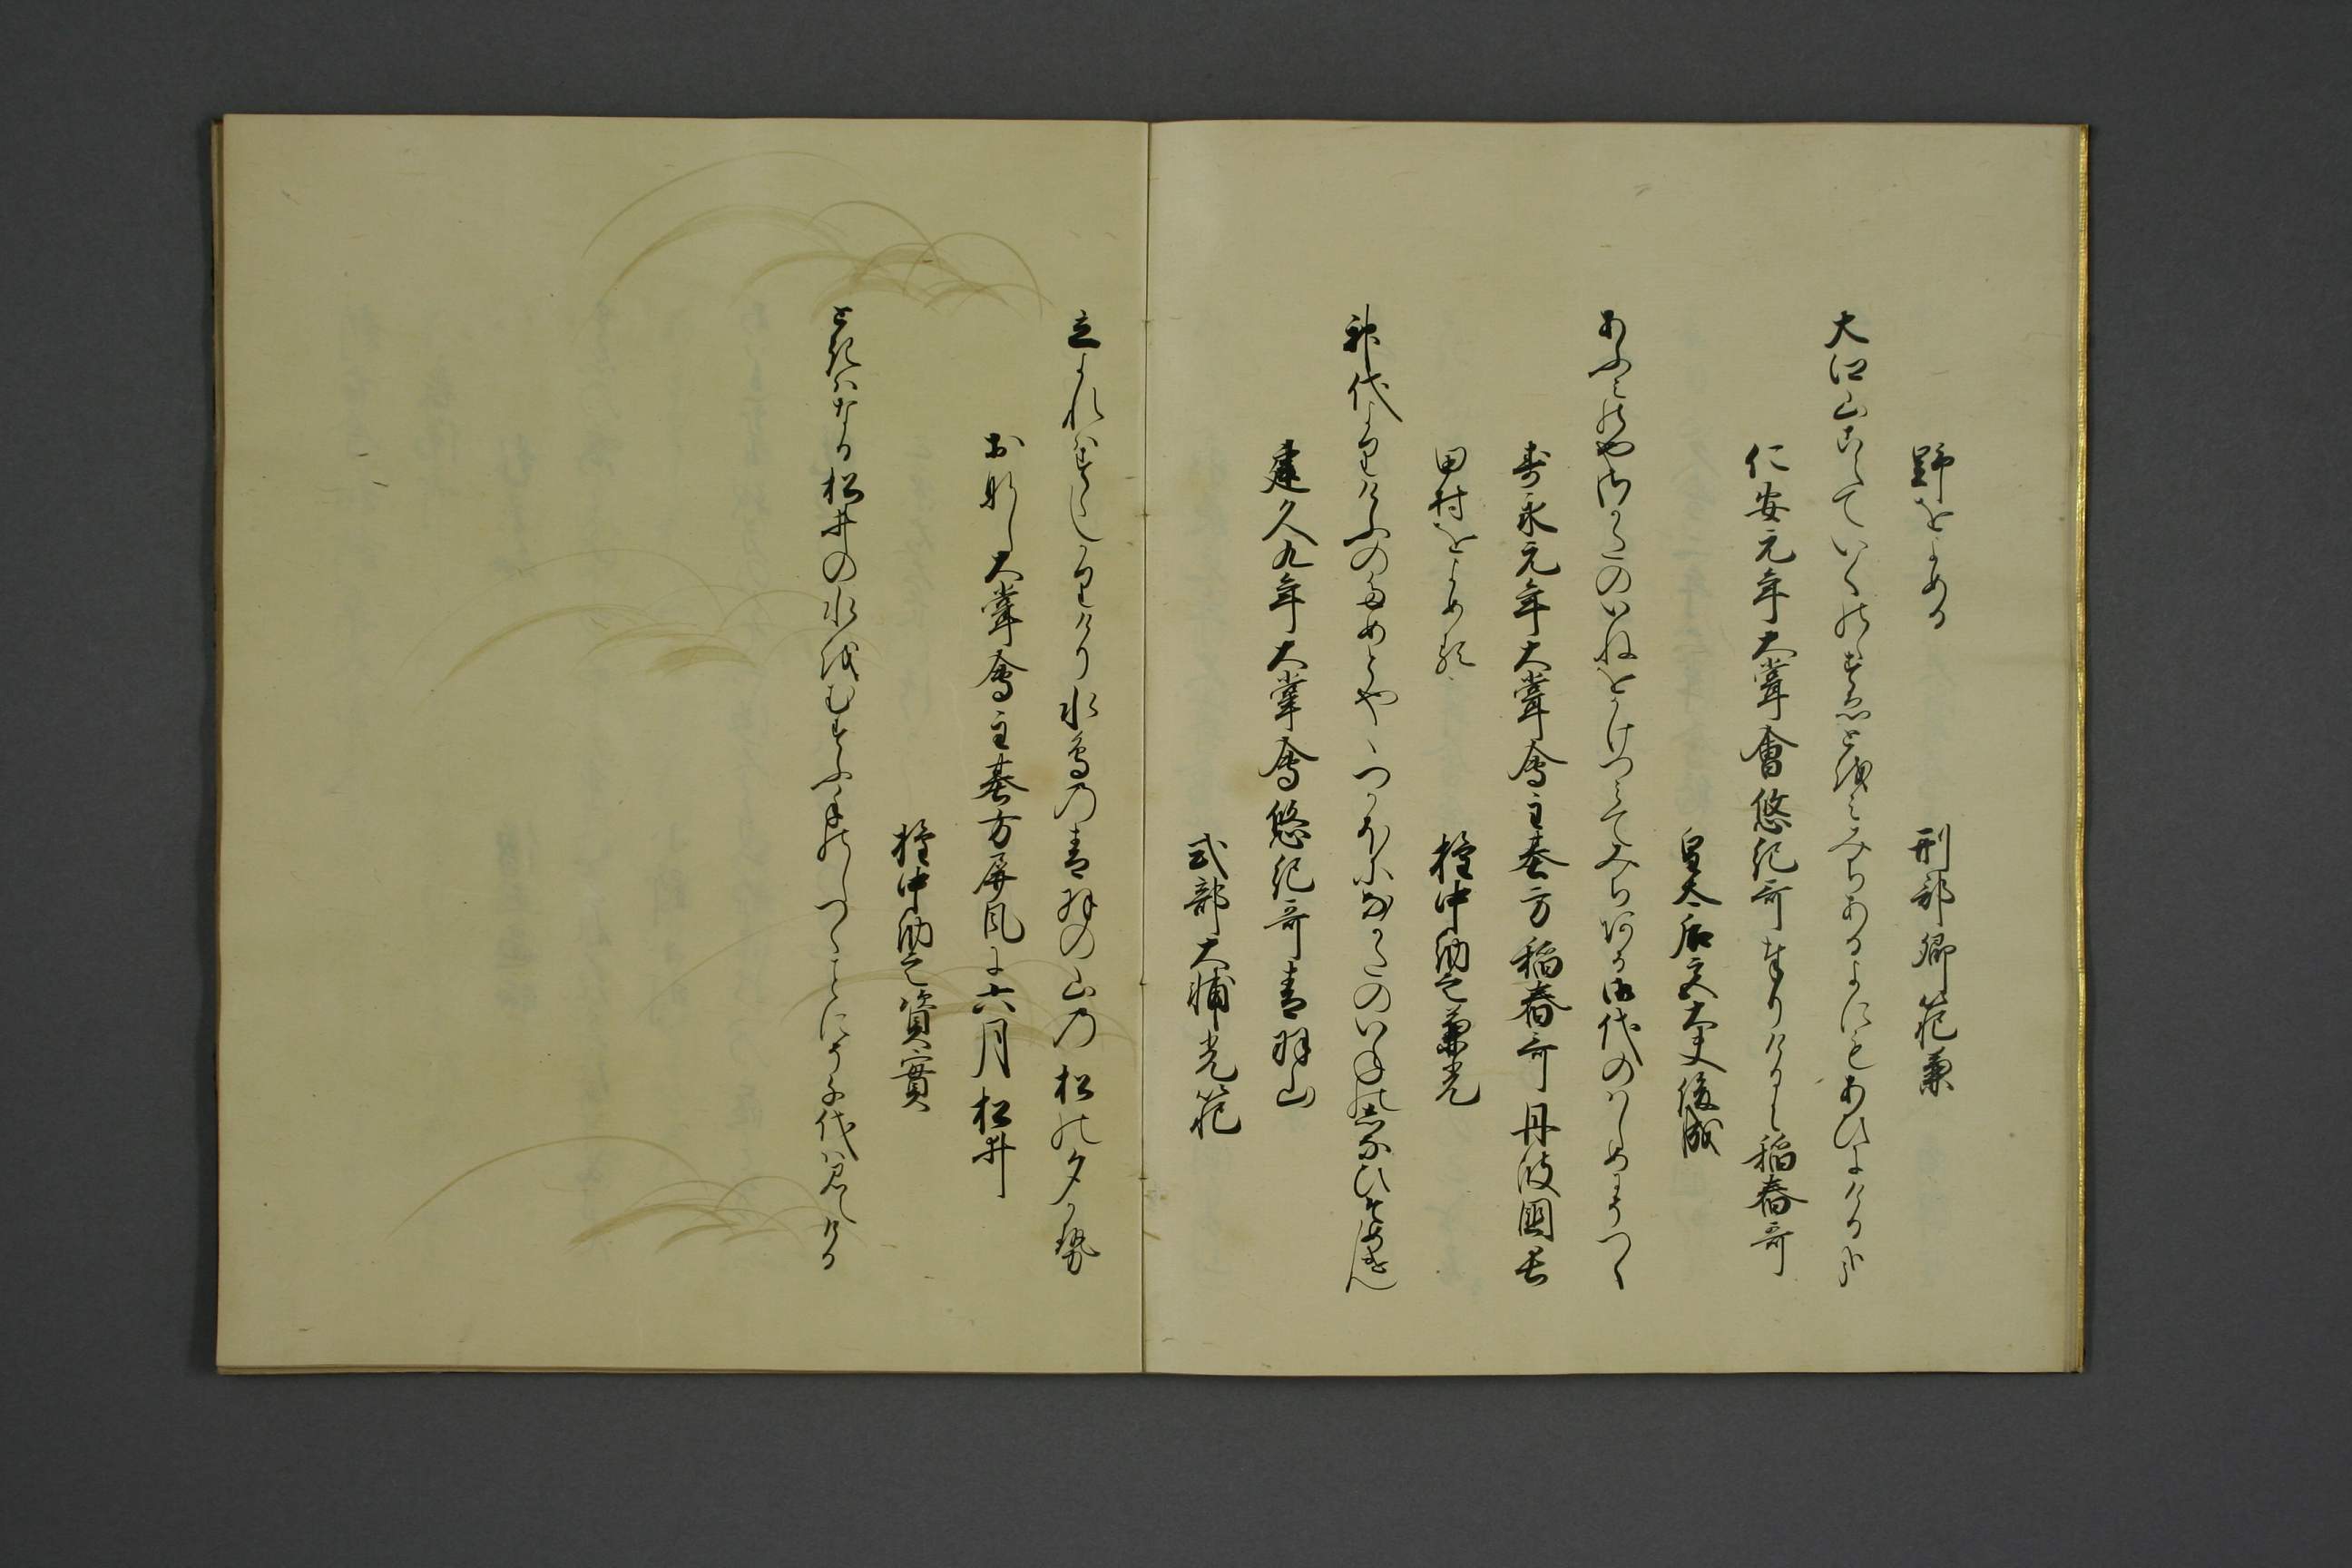 野をよめる　刑部卿範兼
大江山こえていくのゝすゑとをみみちあるよにもあひにけるかな
仁安元年大嘗會悠紀哥奉りけるに稲舂哥
皇太后宮大夫俊成
あふみのやさかたのいねをかけつみてみちある御代のはしめにそつく
壽永元年大嘗會主基方稲舂哥丹波國長
田村をよめる　権中納言兼光
神代よりけふのためとや八つかほになかたのいねのしなひそめけん
建久九年大嘗會悠紀哥青羽山
式部大輔光範
立よれはすゝしかりけり水鳥の青羽の山の松の夕かせ
おなし大嘗會主基方屏風に六月松井
権中納言資實
ときはなる松井の水をむすふ手のしつくことにそ千代は見えける